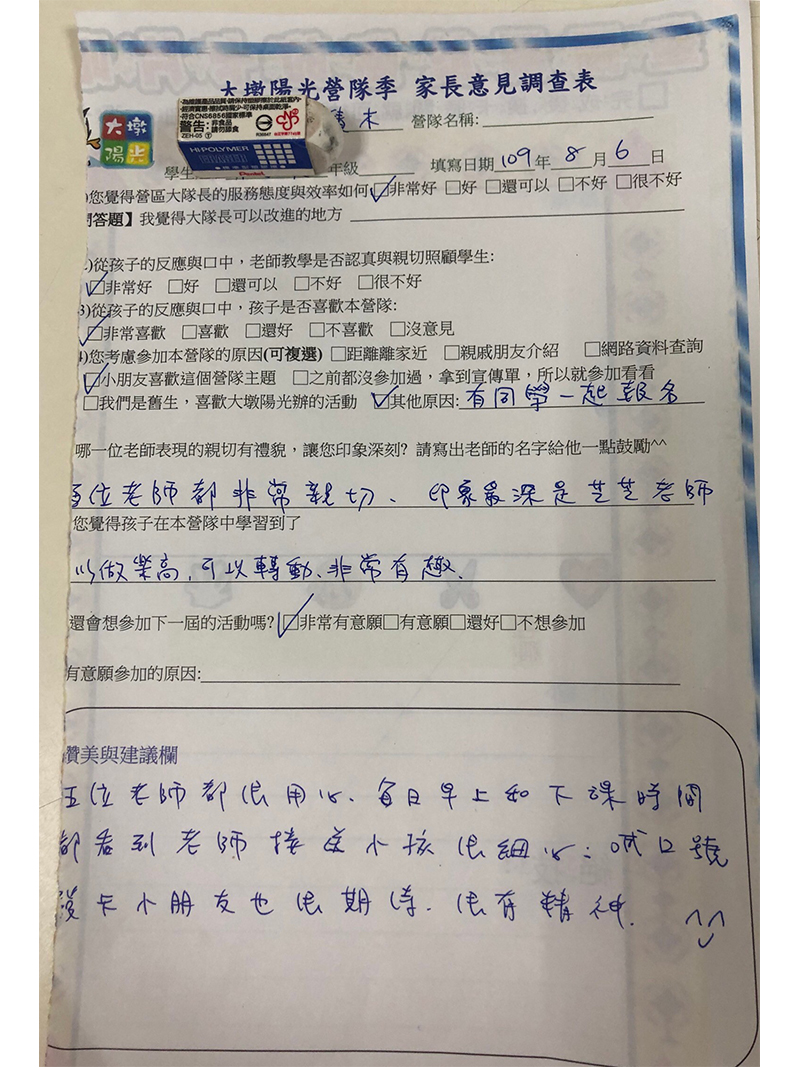 大墩陽光營隊季 家長意見調查表
大墩
陽光
為維護產品品質,請保持細膠擦於此紙套內,
經濟實惠,擦拭時間少,可保持桌面乾淨。
符合CNS6856國家標準
警告: 非食品 請勿誤食
ZEH-05
R38847
HI-POLYMER
Pentel
木 營隊名稱:
學生 年級 填寫日期109年8月6日
)您覺得營區大隊長的服務態度與效率如何 ☑非常好 □好 □還可以 □不好 □很不好
問答題】我覺得大隊長可以改進的地方
2)從孩子的反應與口中,老師教學是否認真與親切照顧學生:
☑非常好 □好 □還可以 □不好 □很不好
3)從孩子的反應與口中,孩子是否喜歡本營隊:
☑非常喜歡 □喜歡 □還好 □不喜歡 □沒意見
4)您考慮參加本營隊的原因(可複選) □距離離家近 □親戚朋友介紹 □網路資料查詢
☑小朋友喜歡這個營隊主題 □之前都沒參加過,拿到宣傳單,所以就參加看看
□我們是舊生,喜歡大墩陽光辦的活動 ☑其他原因:有同學一起報名
哪一位老師表現的親切有禮貌,讓您印象深刻? 請寫出老師的名字給他一點鼓勵^^
位老師都非常親切、印象最深是芝芝老師
您覺得孩子在本營隊中學習到了
以做樂高,可以轉動、非常有趣.
還會想參加下一屆的活動嗎? ☑非常有意願□有意願□還好□不想參加
有意願參加的原因:
讚美與建議欄
五位老師都很用心、每日早上和下課時間
都看到老師接送小孩很細心;喊口號
卡小朋友也很期待.很有精神. ^^